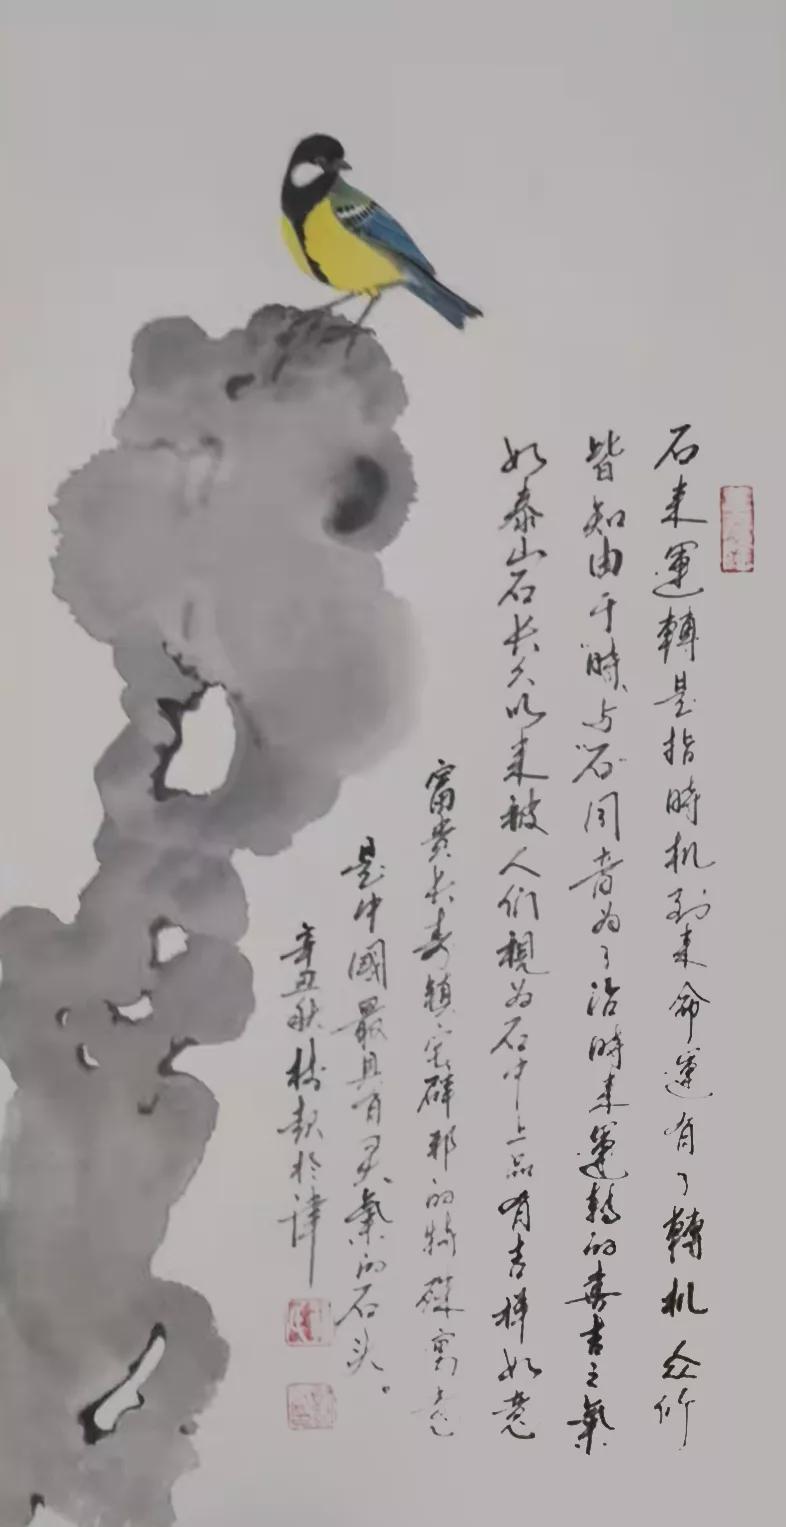 石来運轉是指時机到来命運有了轉机众所
皆知由于時与石同音为了沿時来運轉的喜吉之氣
如泰山石长久以来被人们視为石中上品有吉祥如意
富貴长寿镇宅碎邪的特殊寓意
是中國最具有灵氣的石头。
辛丑秋 於津